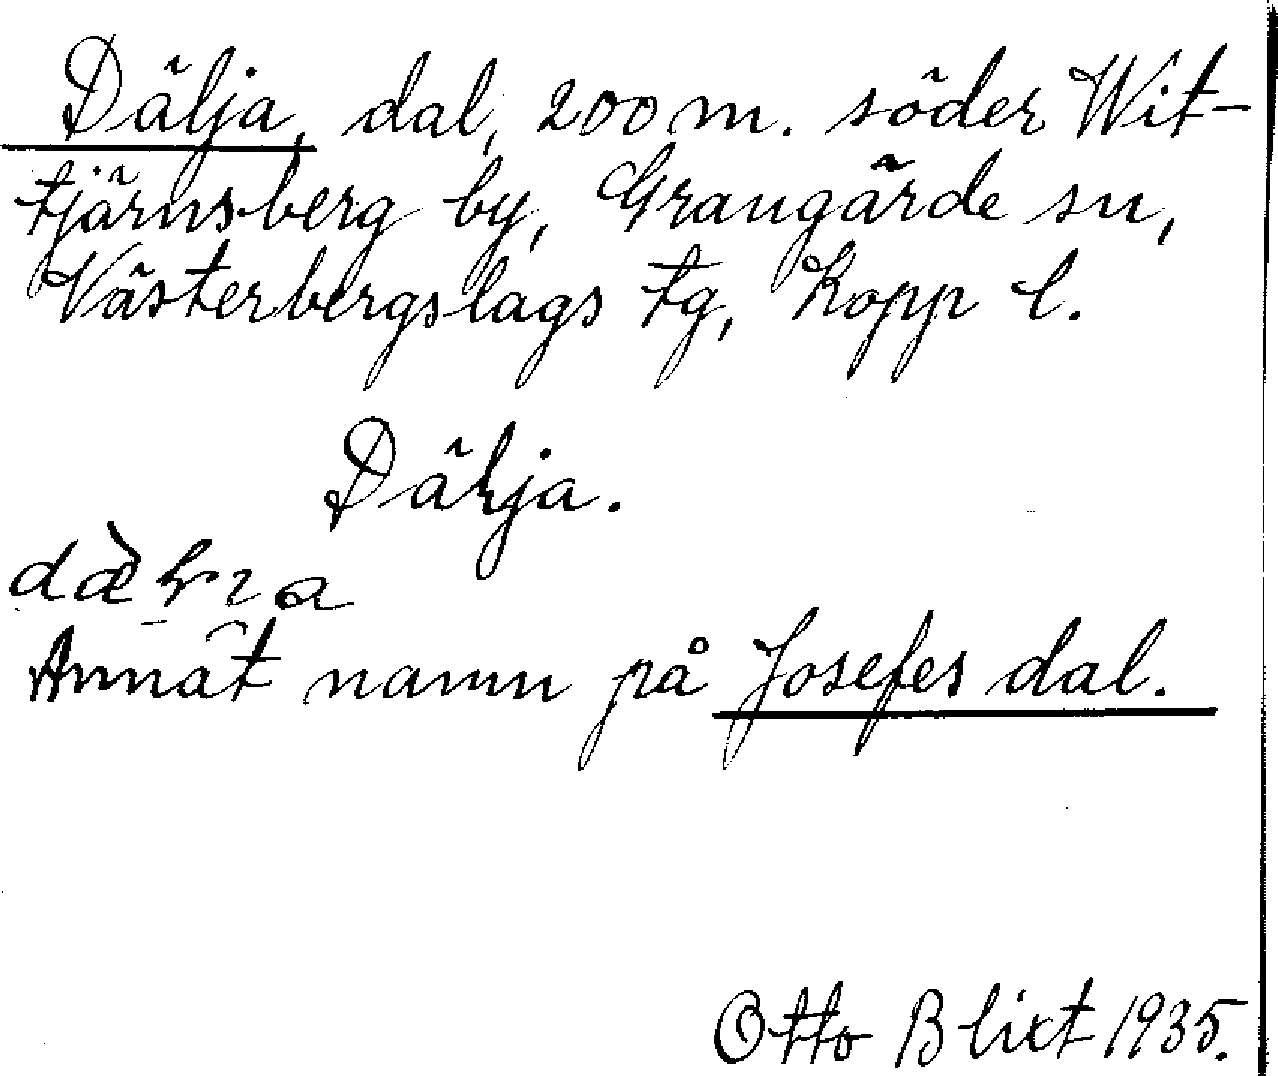 Dälja, dal, 200 m. söder Wit-
tjärnsberg by, Grangärde sn,
Västerbergslags tg, Kopp l.
Däłja.
Annat namn på Josefes dal.
Otto Blixt 1935.